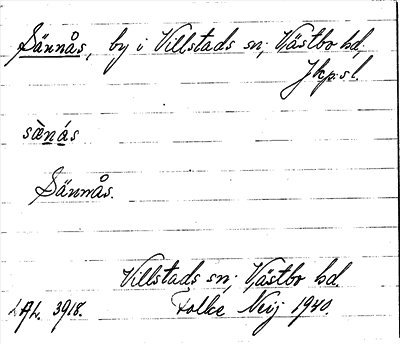 Sännås, by i Villstads sn; Västbo hd,
Jkp. sl.
sæ̀nás
Sännås.
Villstads sn; Västbo hd.
LAL. 3918. Folke Neij 1940.